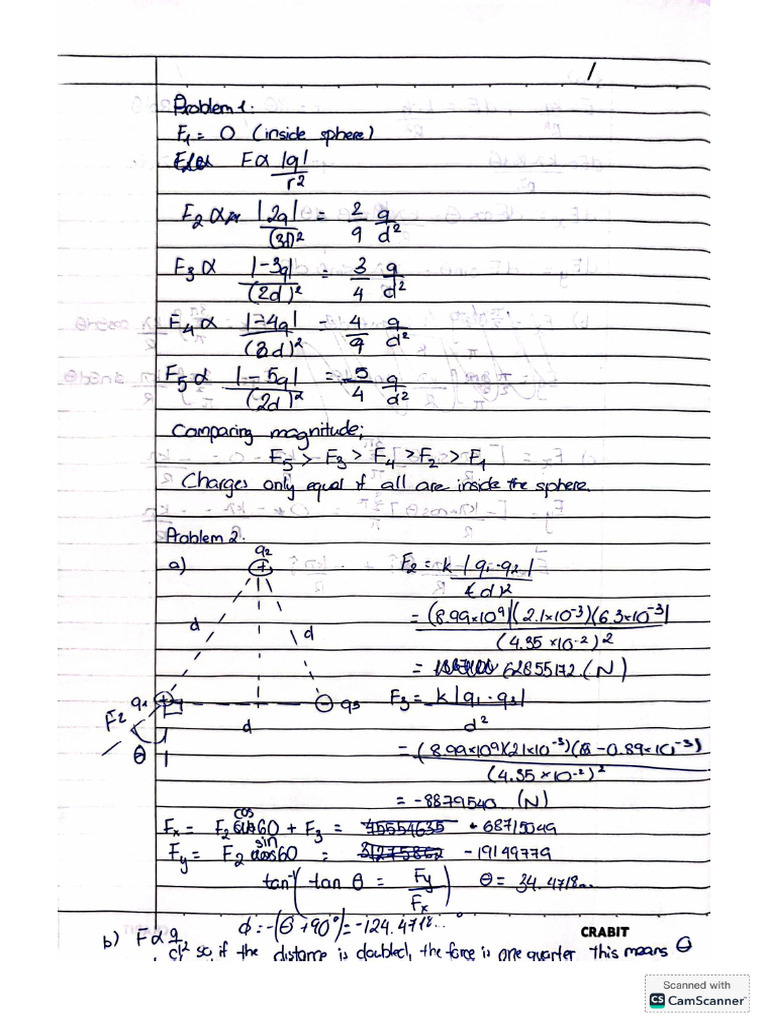 /
Problem 1.
F₁ = 0 (inside sphere)
F ∝ |q| / r²
F₂ ∝ |2q| / (3d)² = 2/9 q/d²
F₃ ∝ |-3q| / (2d)² = 3/4 q/d²
F₄ ∝ |-4q| / (3d)² = 4/9 q/d²
F₅ ∝ |-5q| / (2d)² = 5/4 q/d²
Comparing magnitude;
F₅ > F₃ > F₄ > F₂ > F₁
Charges only equal if all are inside the sphere.
Problem 2.
a) q₂ + F₂ = k |q₁ · q₂| / (d)²
d d = (8.99×10⁹)(2.1×10⁻³)(6.3×10⁻³) / (4.35×10⁻²)²
= 62855172.(N)
q₁ + − q₃ F₃ = k |q₁ · q₃| / d²
F₂ d
θ = (8.99×10⁹)(2.1×10⁻³)(-0.89×10⁻³) / (4.35×10⁻²)²
= -8879540... (N)
Fx = F₂ cos 60 + F₃ =
Fy = F₂ sin 60 = - 19149779
tan⁻¹(tan θ = Fy / Fx) θ = 34.4718...
ϕ = -(θ + 90°) = -124.4718...°
CRABIT
b) F ∝ q / d² so, if the distance is doubled, the force is one quarter This means θ
Scanned with
CS CamScanner